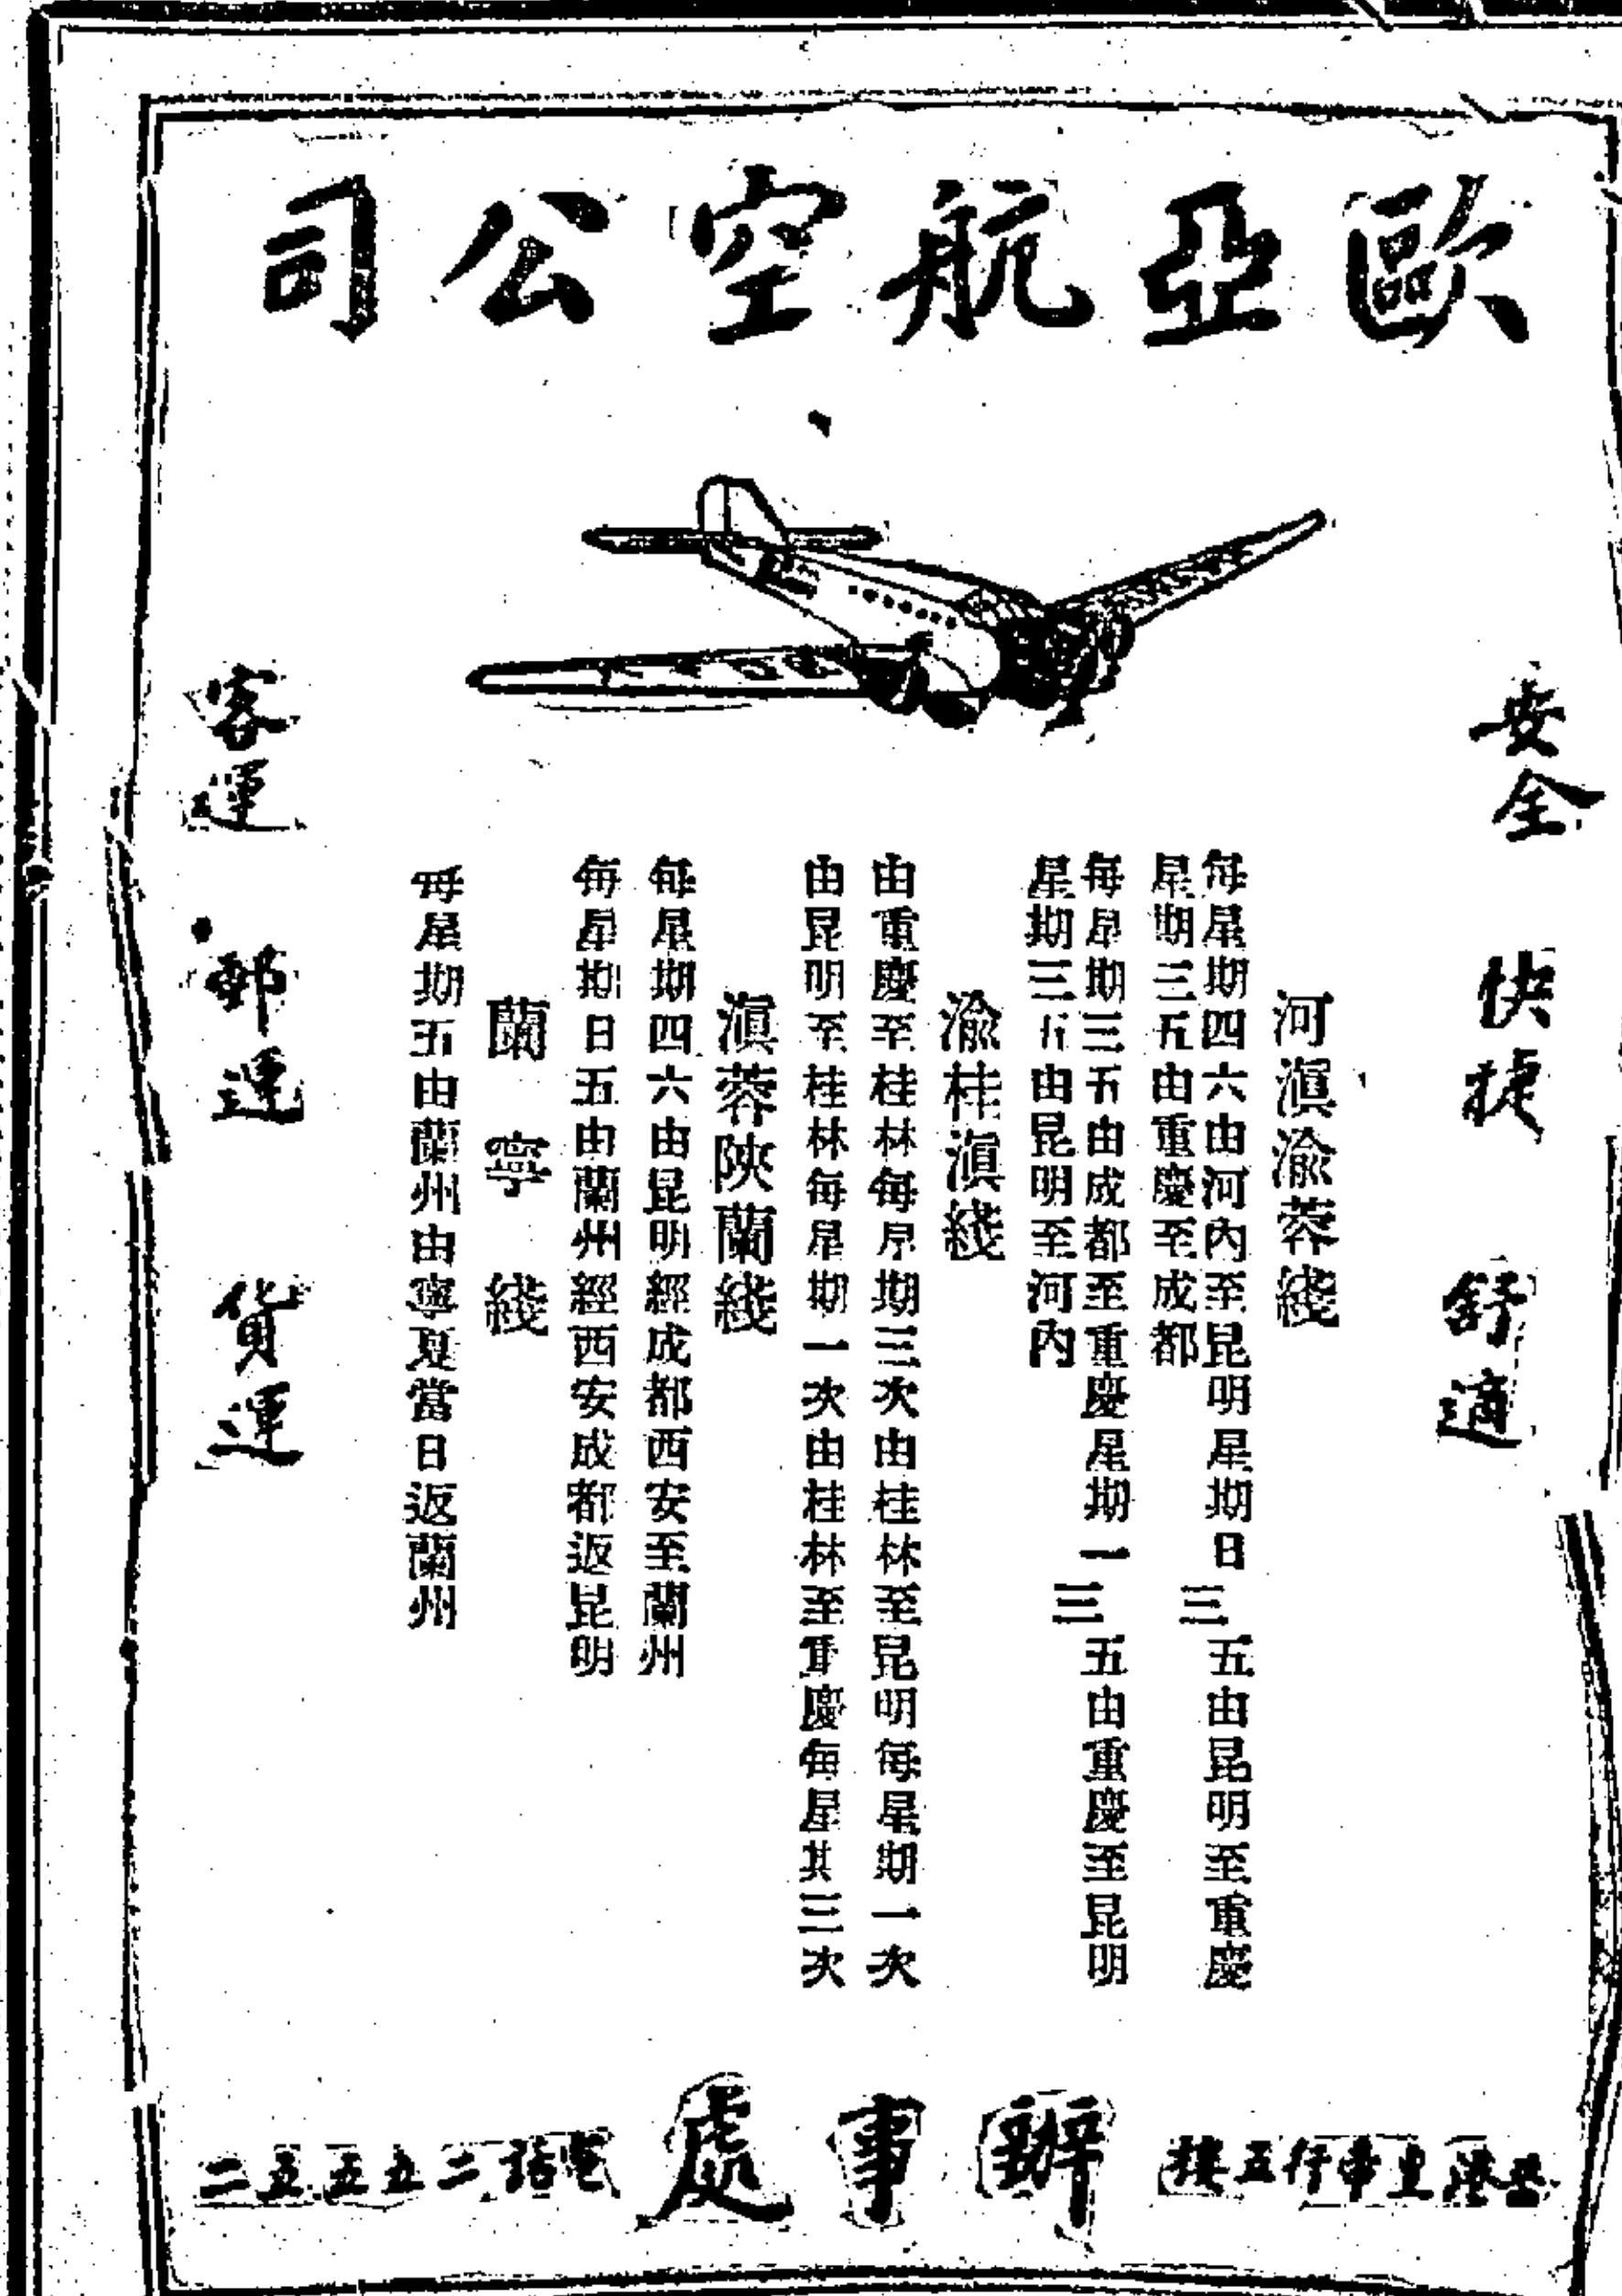 歐亞航空公司
安全 快捷 舒適
河滇渝蓉綫
每星期四六由河內至昆明星期日三五由昆明至重慶
星期三五由重慶至成都
每星期三五由成都至重慶星期一三五由重慶至昆明
星期三五由昆明至河內
渝桂滇綫
由重慶至桂林每星期三次由桂林至昆明每星期一次
由昆明至桂林每星期一次由桂林至重慶每星其三次
滇蓉陝蘭綫
每星期四六由昆明經成都西安至蘭州
每星期日五由蘭州經西安成都返昆明
蘭寧綫
每星期五由蘭州由寧夏當日返蘭州
客運 郵運 貨運
香港皇帝行五樓
辦事處
電話二五五五二